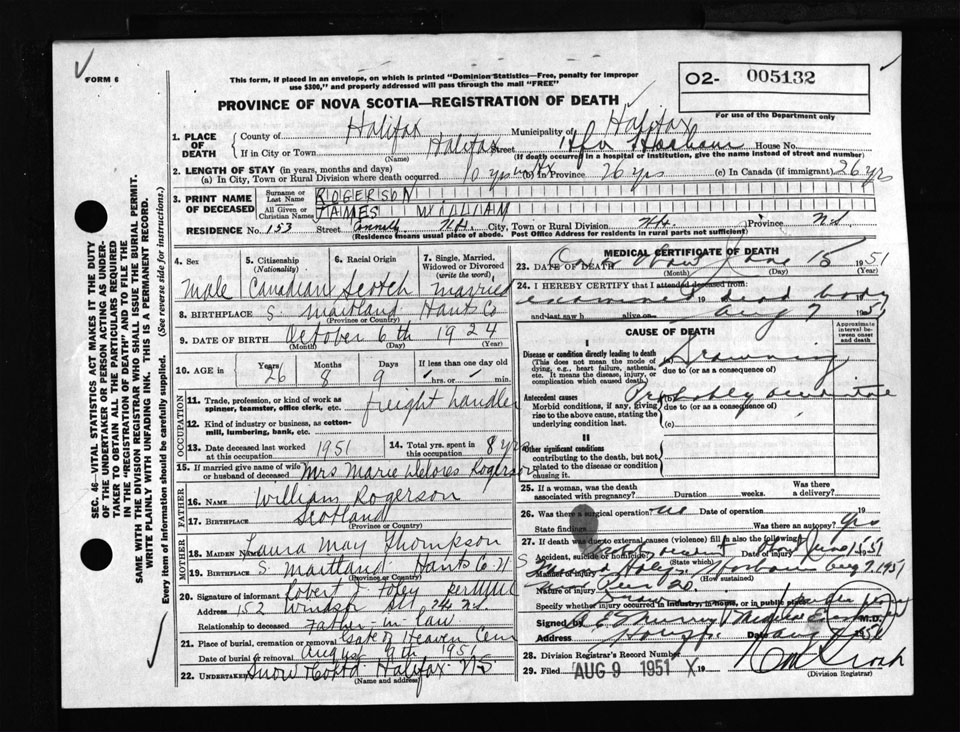 FORM 6
This form, if placed in an envelope, on which is printed "Dominion Statistics—Free, penalty for improper
use $300," and properly addressed will pass through the mail "FREE"
O2- 005132
For use of the Department only
PROVINCE OF NOVA SCOTIA—REGISTRATION OF DEATH
1. PLACE OF DEATH
County of Halifax Municipality of Halifax
If in City or Town Halifax Street Hfx Harbour House No.
(Name) (If death occurred in a hospital or institution, give the name instead of street and number)
2. LENGTH OF STAY (in years, months and days)
(a) In City, Town or Rural Division where death occurred 10 yrs (b) In Province 26 yrs (c) In Canada (if immigrant) 26 yrs
3. PRINT NAME OF DECEASED
Surname or Last Name ROGERSON
All Given or Christian Names JAMES WILLIAM
RESIDENCE No. 153 Street City, Town or Rural Division Hfx Province NS
(Residence means usual place of abode. Post Office Address for residents in rural parts not sufficient)
4. Sex Male
5. Citizenship (Nationality) Canadian
6. Racial Origin Scotch
7. Single, Married, Widowed or Divorced (write the word) married
8. BIRTHPLACE S. Maitland Hants Co
(Province or Country)
9. DATE OF BIRTH October 6th 1924
(Month) (Day) (Year)
10. AGE Years 26 Months 8 Days 9 If less than one day old hrs. or min.
OCCUPATION
11. Trade, profession, or kind of work as spinner, teamster, office clerk, etc. freight handler
12. Kind of industry or business, as cotton-mill, lumbering, bank, etc.
13. Date deceased last worked at this occupation 1951
14. Total yrs. spent in this occupation 8 yrs
15. If married give name of wife or husband of deceased Mrs Marie Delores Rogerson
FATHER
16. NAME William Rogerson
17. BIRTHPLACE Scotland
(Province or Country)
MOTHER
18. MAIDEN NAME Laura May Thompson
19. BIRTHPLACE S. Maitland Hants Co. N S
(Province or Country)
20. Signature of informant Robert J. Foley
Address 152 Windsor St Hfx NS
Relationship to deceased Father-in-law
21. Place of burial, cremation or removal Gate of Heaven Cem
Date of burial or removal August 9th 1951
22. UNDERTAKER Snow Co Ltd Halifax NS
(Name and address)
MEDICAL CERTIFICATE OF DEATH
23. DATE OF DEATH June 15 1951
(Month) (Day) (Year)
24. I HEREBY CERTIFY that I attended deceased from
examined 19 dead body
and last saw h alive on Aug 7 1951
CAUSE OF DEATH
Approximate interval between onset and death
I
Disease or condition directly leading to death
(This does not mean the mode of dying, e.g., heart failure, asthenia, etc. It means the disease, injury, or complication which caused death.)
Drowning
due to (or as a consequence of)
Antecedent causes
Morbid conditions, if any, giving rise to the above cause, stating the underlying condition last.
Probably accidental
due to (or as a consequence of)
(c)
II
Other significant conditions
contributing to the death, but not related to the disease or condition causing it.
25. If a woman, was the death associated with pregnancy? Duration weeks. Was there a delivery?
26. Was there a surgical operation no Date of operation
State findings Was there an autopsy? Yes
27. If death was due to external causes (violence) fill in also the following:
Accident, suicide or homicide? accident Date of injury June 15 1951
(State which)
Manner of injury Found Halifax Harbour Aug 7 1951
(How sustained)
Nature of injury
Specify whether injury occurred in industry, in home, or in public place
Signed by Medical M.D.
Address Date Aug
28. Division Registrar's Record Number
29. Filed AUG 9 1951 X 19
(Division Registrar)
SEC. 46—VITAL STATISTICS ACT MAKES IT THE DUTY
OF THE UNDERTAKER OR PERSON ACTING AS UNDER-
TAKER TO OBTAIN ALL THE PARTICULARS REQUIRED
IN THE "REGISTRATION OF DEATH" AND TO FILE THE
SAME WITH THE DIVISION REGISTRAR WHO SHALL ISSUE THE BURIAL PERMIT.
WRITE PLAINLY WITH UNFADING INK. THIS IS A PERMANENT RECORD.
Every item of information should be carefully supplied. (See reverse side for instructions.)